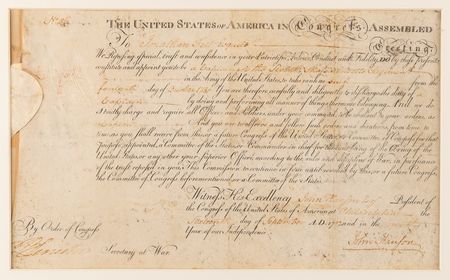 The United States of America in Congress Assembled
Greeting,
To Jonathan
We Reposing especial trust and confidence in your Patriotism, Valour, Conduct and Fidelity, DO by these Presents
constitute and appoint you to be a
in the Army of the United States, to take rank as such from the
day of You are therefore carefully and diligently to discharge the duty of
Captain by doing and performing all manner of things thereunto belonging. And we do
strictly charge and require all Officers and Soldiers under your command, to be obedient to your orders, as
And you are to observe and follow such orders and directions from time to
time as you shall receive from this or a future Congress of the United States, or Committee of Congress for that
Purpose appointed, a Committee of the States, or Commander in chief for the time being of the Army of the
United States, or any other your Superior Officer, according to the rules and discipline of War, in pursuance
of the trust reposed in you. This Commission to continue in force until revoked by this, or a future Congress,
the Committee of Congress before mentioned, or a Committee of the States.
Witness His Excellency John Hanson Esqr. President of
the Congress of the United States of America at Philadelphia the
day of September A.D. 1782 and in the
Year of our Independence.
By Order of Congress
John Hanson
Secretary at War.